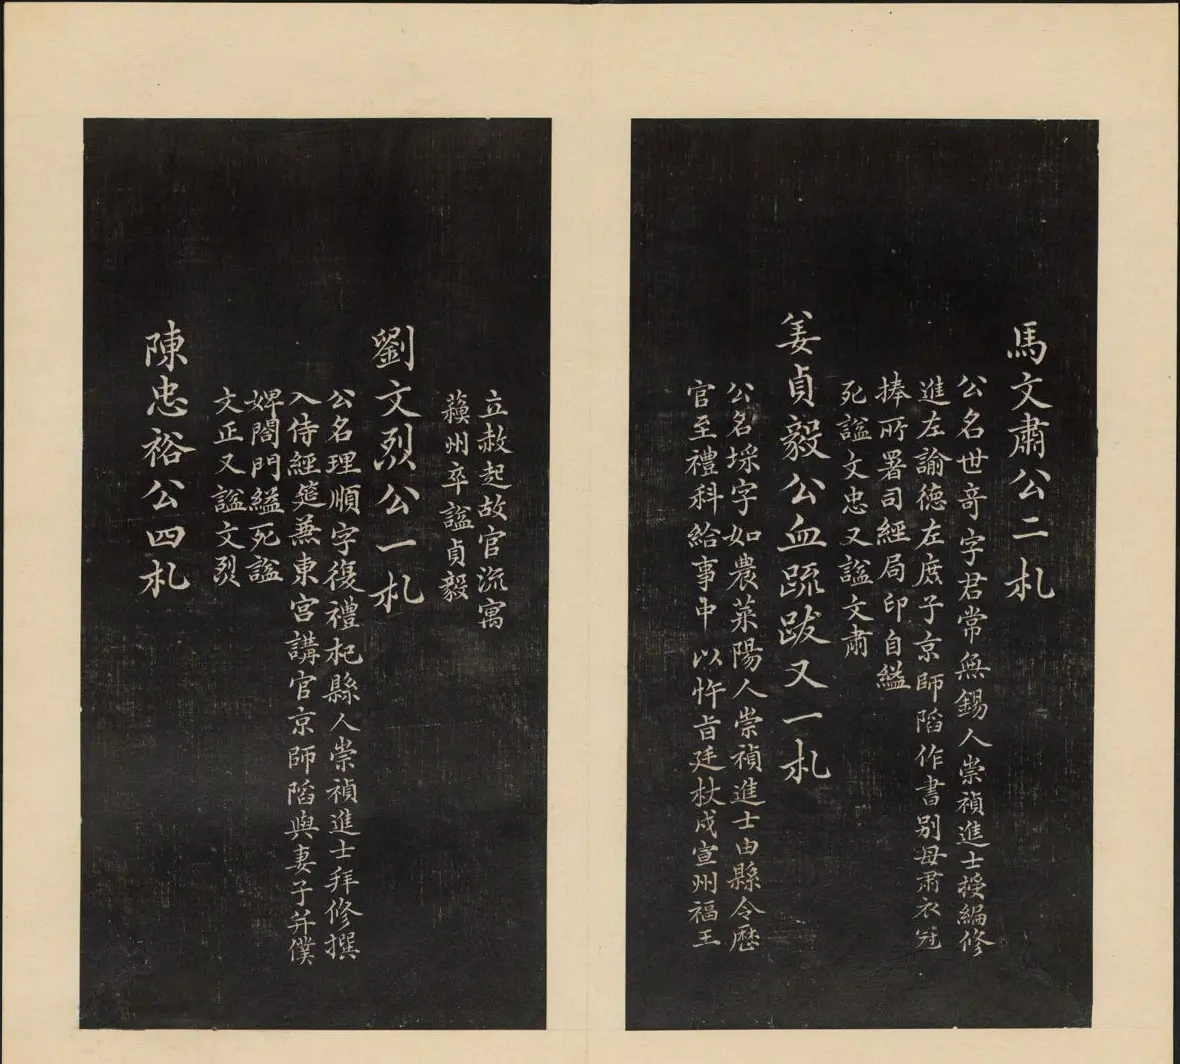 馬文肅公二札
公名世奇字君常無錫人崇禎進士授編修
進左諭德左庶子京師陷作書別母肅衣冠
捧所署司經局印自縊
死諡文忠又諡文肅
姜貞毅公血疏跋又一札
公名埰字如農萊陽人崇禎進士由縣令歷
官至禮科給事中以忤旨廷杖戍宣州福王
立赦起故官流寓
蘓州卒諡貞毅
劉文烈公一札
公名理順字復禮杞縣人崇禎進士拜修撰
入侍經筵兼東宮講官京師陷與妻子并僕
婢闔門縊死諡
文正又諡文烈
陳忠裕公四札